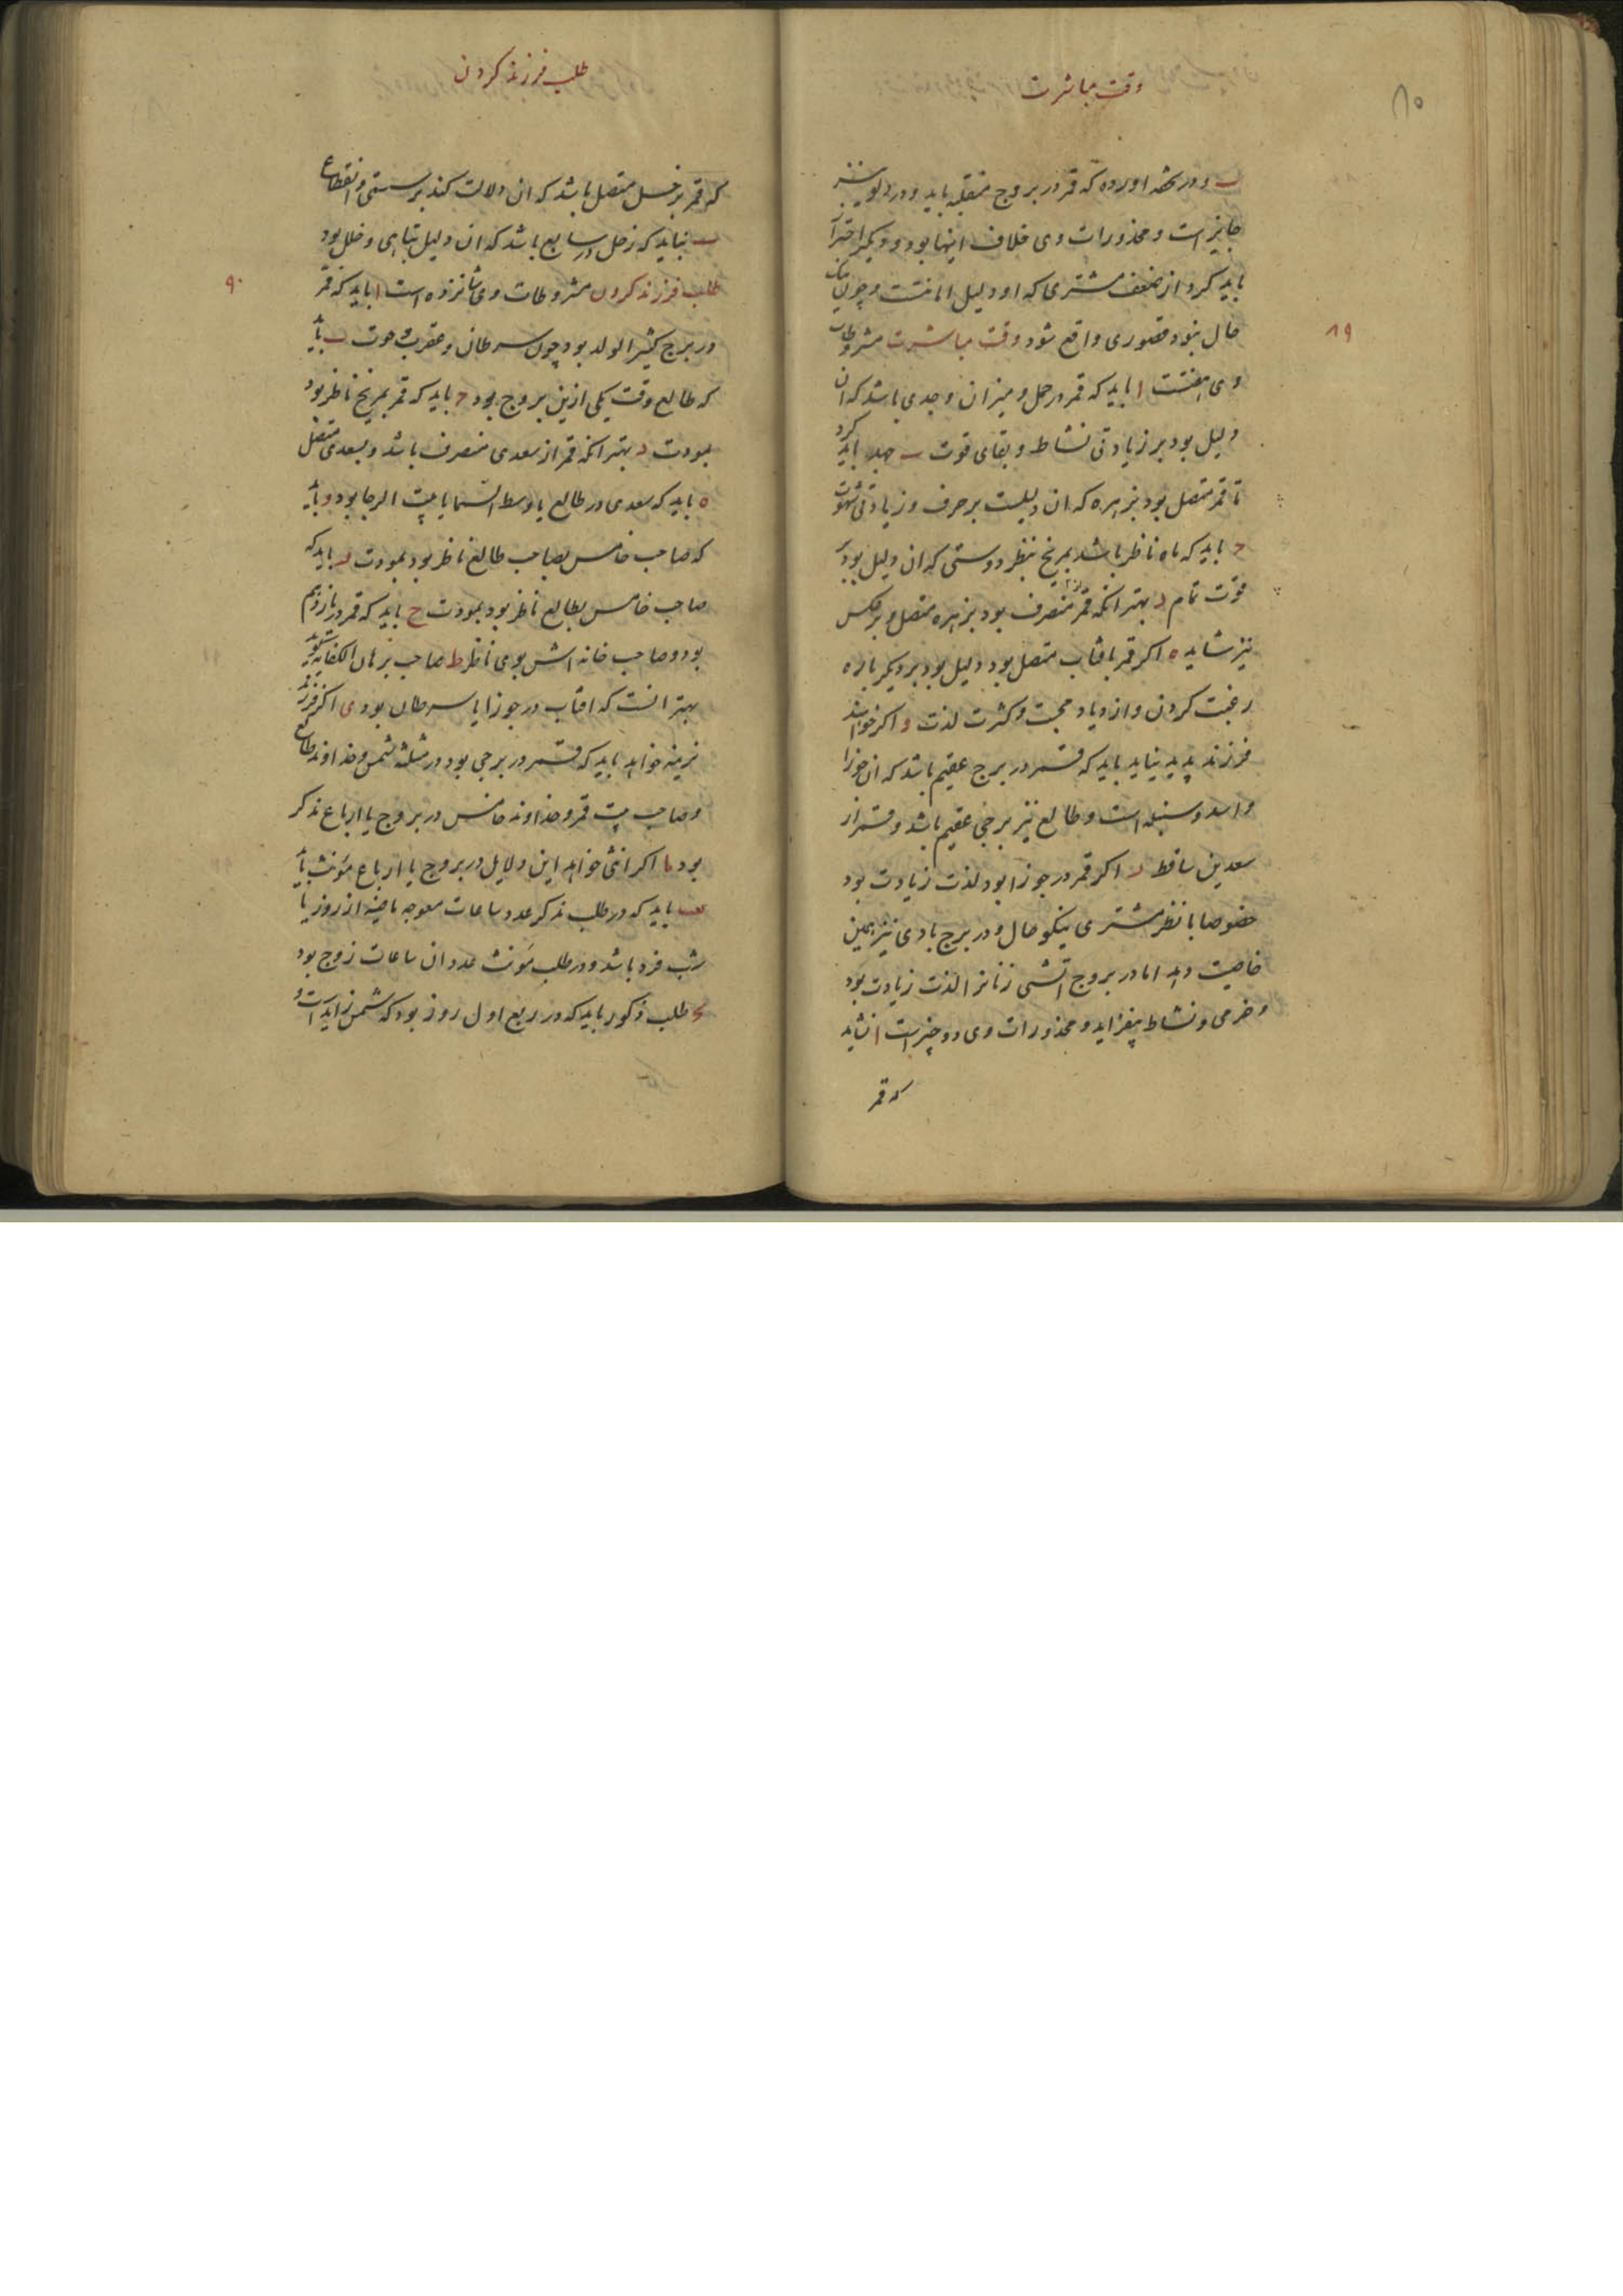 وقت مباشرت
۸۵
ب و در تحفه اورده که قمر در بروج منقلبه باید و در دلو نیز
جایز است و محذورات وی خلاف اینها بود و دیگر احتراز
باید کرد از ضعف مشتری که او دلیل امانتست و چون نیک
حال نبود قصوری واقع شود وقت مباشرت مشروطات
۸۹
وی هفتست ا باید که قمر در حمل و میزان و جدی باشد که ان
دلیل بود بر زیادتی نشاط و بقای قوت ب جهد باید کرد
تا قمر متصل بود بزهره که ان دلیلست بر حرف و زیادتی شهوت
ج باید که ماه ناظر باشد بمریخ بنظر دوستی که ان دلیل بود بر
قوت تمام د بهتر انکه قمر منصرف بود بزهره متصل و بر عکس
نیز شاید ه اکر قمر بافتاب متصل بود دلیل بود بر دیکر باره
رغبت کردن و ازدیاد محبت و کثرت لذت و اکر خواهند
فرزند پدید نیاید باید که قمر در برج عقیم باشد که ان جوزا
و اسد و سنبله است و طالع نیز برجی عقیم باشد و قمر از
سعدین ساقط ز اکر قمر در جوزا بود لذت زیادت بود
خصوصا با نظر مشتری نیکو حال و در برج بادی نیز همین
خاصیت دهد اما در بروج اتشی زنانرا لذت زیادت بود
و خرمی و نشاط بیفزاید و محذورات وی دو چیز است ا نشاید
که قمر
طلب فرزند کردن
که قمر بزحل متصل باشد که ان دلالت کند بر سستی و انقطاع
ب نباید که زحل در سابع باشد که ان دلیل تباهی و خلل بود
طلب فرزند کردن مشروطات وی شانزده است ا باید که قمر
۹۰
در برج کثیر الولد بود چون سرطان و عقرب و حوت ب باید
که طالع وقت یکی ازین بروج بود ج باید که قمر بمریخ ناظر بود
بمودت د بهتر انکه قمر از سعدی منصرف باشد و بسعدی متصل
ه باید که سعدی در طالع یا وسط السما یا بیت الرجا بود و باید
که صاحب خامس بصاحب طالع ناظر بود بمودت ز باید که
صاحب خامس بطالع ناظر بود بمودت ح باید که قمر در یازدهم
بود و صاحب خانه اش بوی ناظر ط صاحب برهان الکفایه کوید
بهتر انست که افتاب در جوزا یا سرطان بود ی اکر فرزند
نرینه خواهد باید که قمر در برجی بود در مثلثه شمس و خداوند طالع
و صاحب بیت قمر و خداوند خامس در بروج یا ارباع مذکر
بود یا اکر انثی خواهد این دلایل در بروج یا ارباع مؤنث باید
یب باید که در طلب مذکر عدد ساعات معوجه ماضیه از روز یا
شب فرد باشد و در طلب مؤنث عدد ان ساعات زوج بود
یج طلب ذکور باید که در ربع اول روز بود که شمس زاید است و